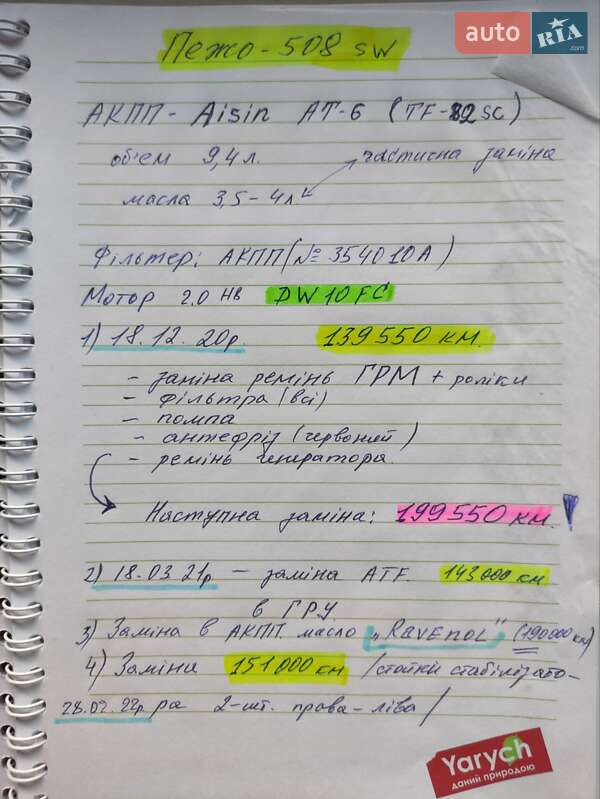 auto RIA .com
Пежо - 508 SW
АКПП - Aisin AT-6 (TF-82SC)
об'єм 9,4 л. частисна заміна
масла 3,5 - 4 л.
Фільтер: АКПП (№ 354010A)
Мотор 2.0 HB DW10FC
1) 18.12.20р. 139550 км.
- заміна ремінь ГРМ + роліки
- фільтра (всі)
- помпа
- антефріз (червоний)
- ремінь генератора.
Наступна заміна: 199550 км. !
2) 18.03.21р - заміна ATF. 143000 км
в ГРУ
3) Заміна в АКПП масло „Ravenol" (190000 км)
4) Заміни 151000 км /стойки стабілізато-
28.02.22р. ра 2-шт. права-ліва/
Yarych
даний природою